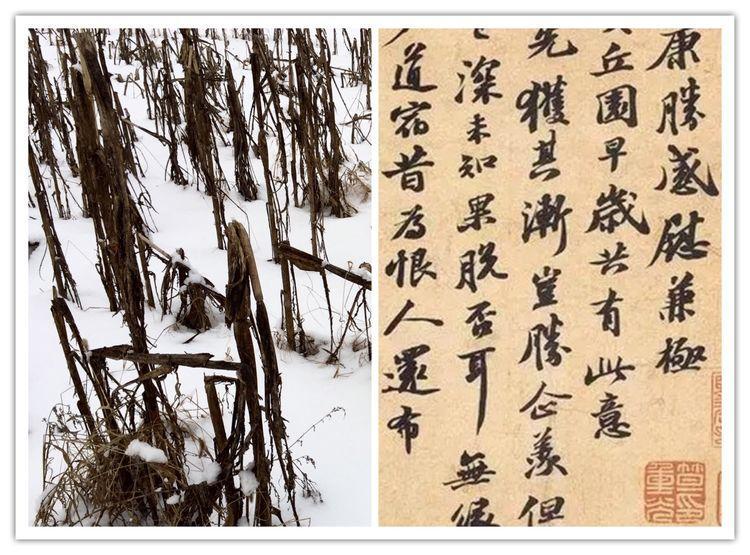 康勝感慰兼極
丘園早歲共有此意
先獲其漸豈勝企羨但
深未知果脫否耳無緣
道宿昔為恨人還布